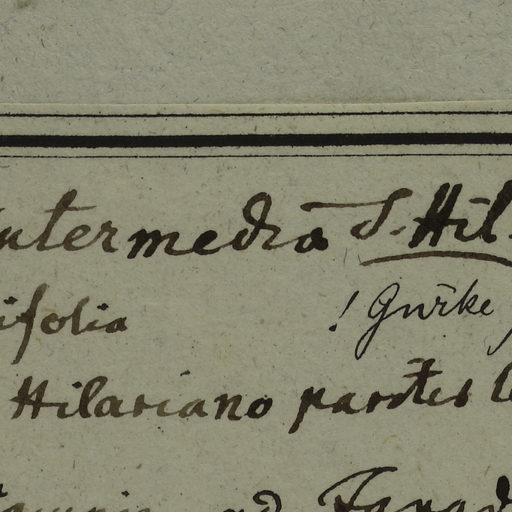 intermedia S. Hil.
ifolia ! Gürke
Hilariano partes
ad